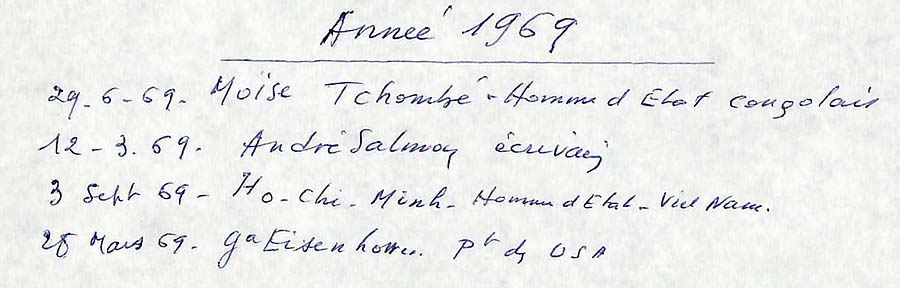 Anneé 1969
29-6-69. Moïse Tchombé - Homme d Etat congolais
12-3. 69. André Salmon écrivain
3 Sept 69 - Ho-Chi-Minh - Homme d Etat - Viet Nam.
28 Mars 69. Gal Eisenhower. Pt des USA